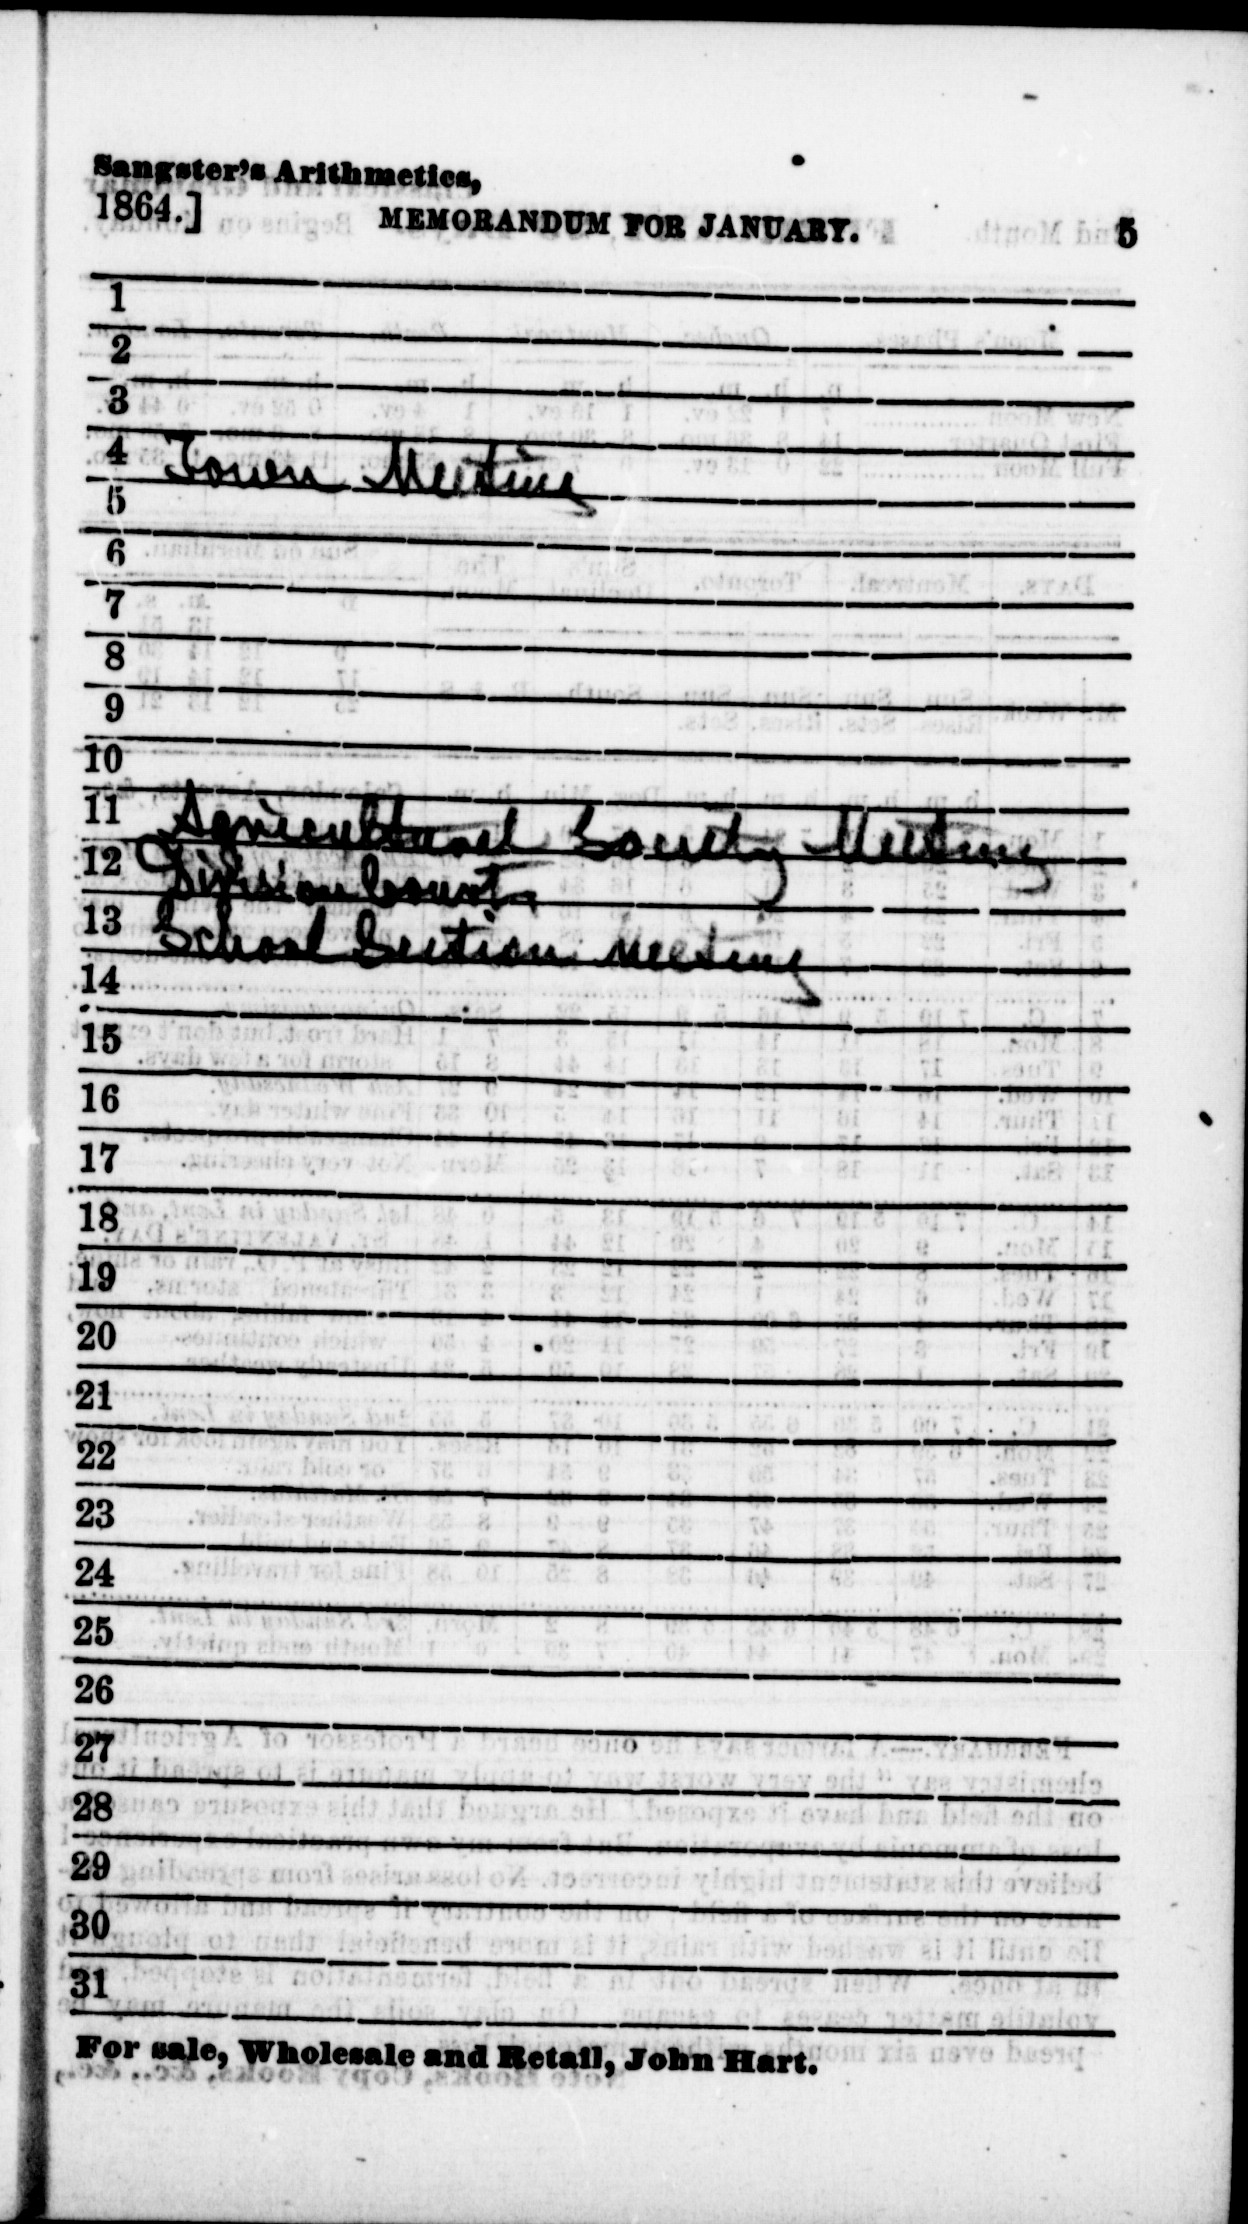 Sangster's Arithmetics,
1864.] MEMORANDUM FOR JANUARY. 5
1
2
3
4 Town Meeting
5
6
7
8
9
10
11 Agricultural Society Meeting
12 Division Court
13 School Section Meeting
14
15
16
17
18
19
20
21
22
23
24
25
26
27
28
29
30
31
For sale, Wholesale and Retail, John Hart.